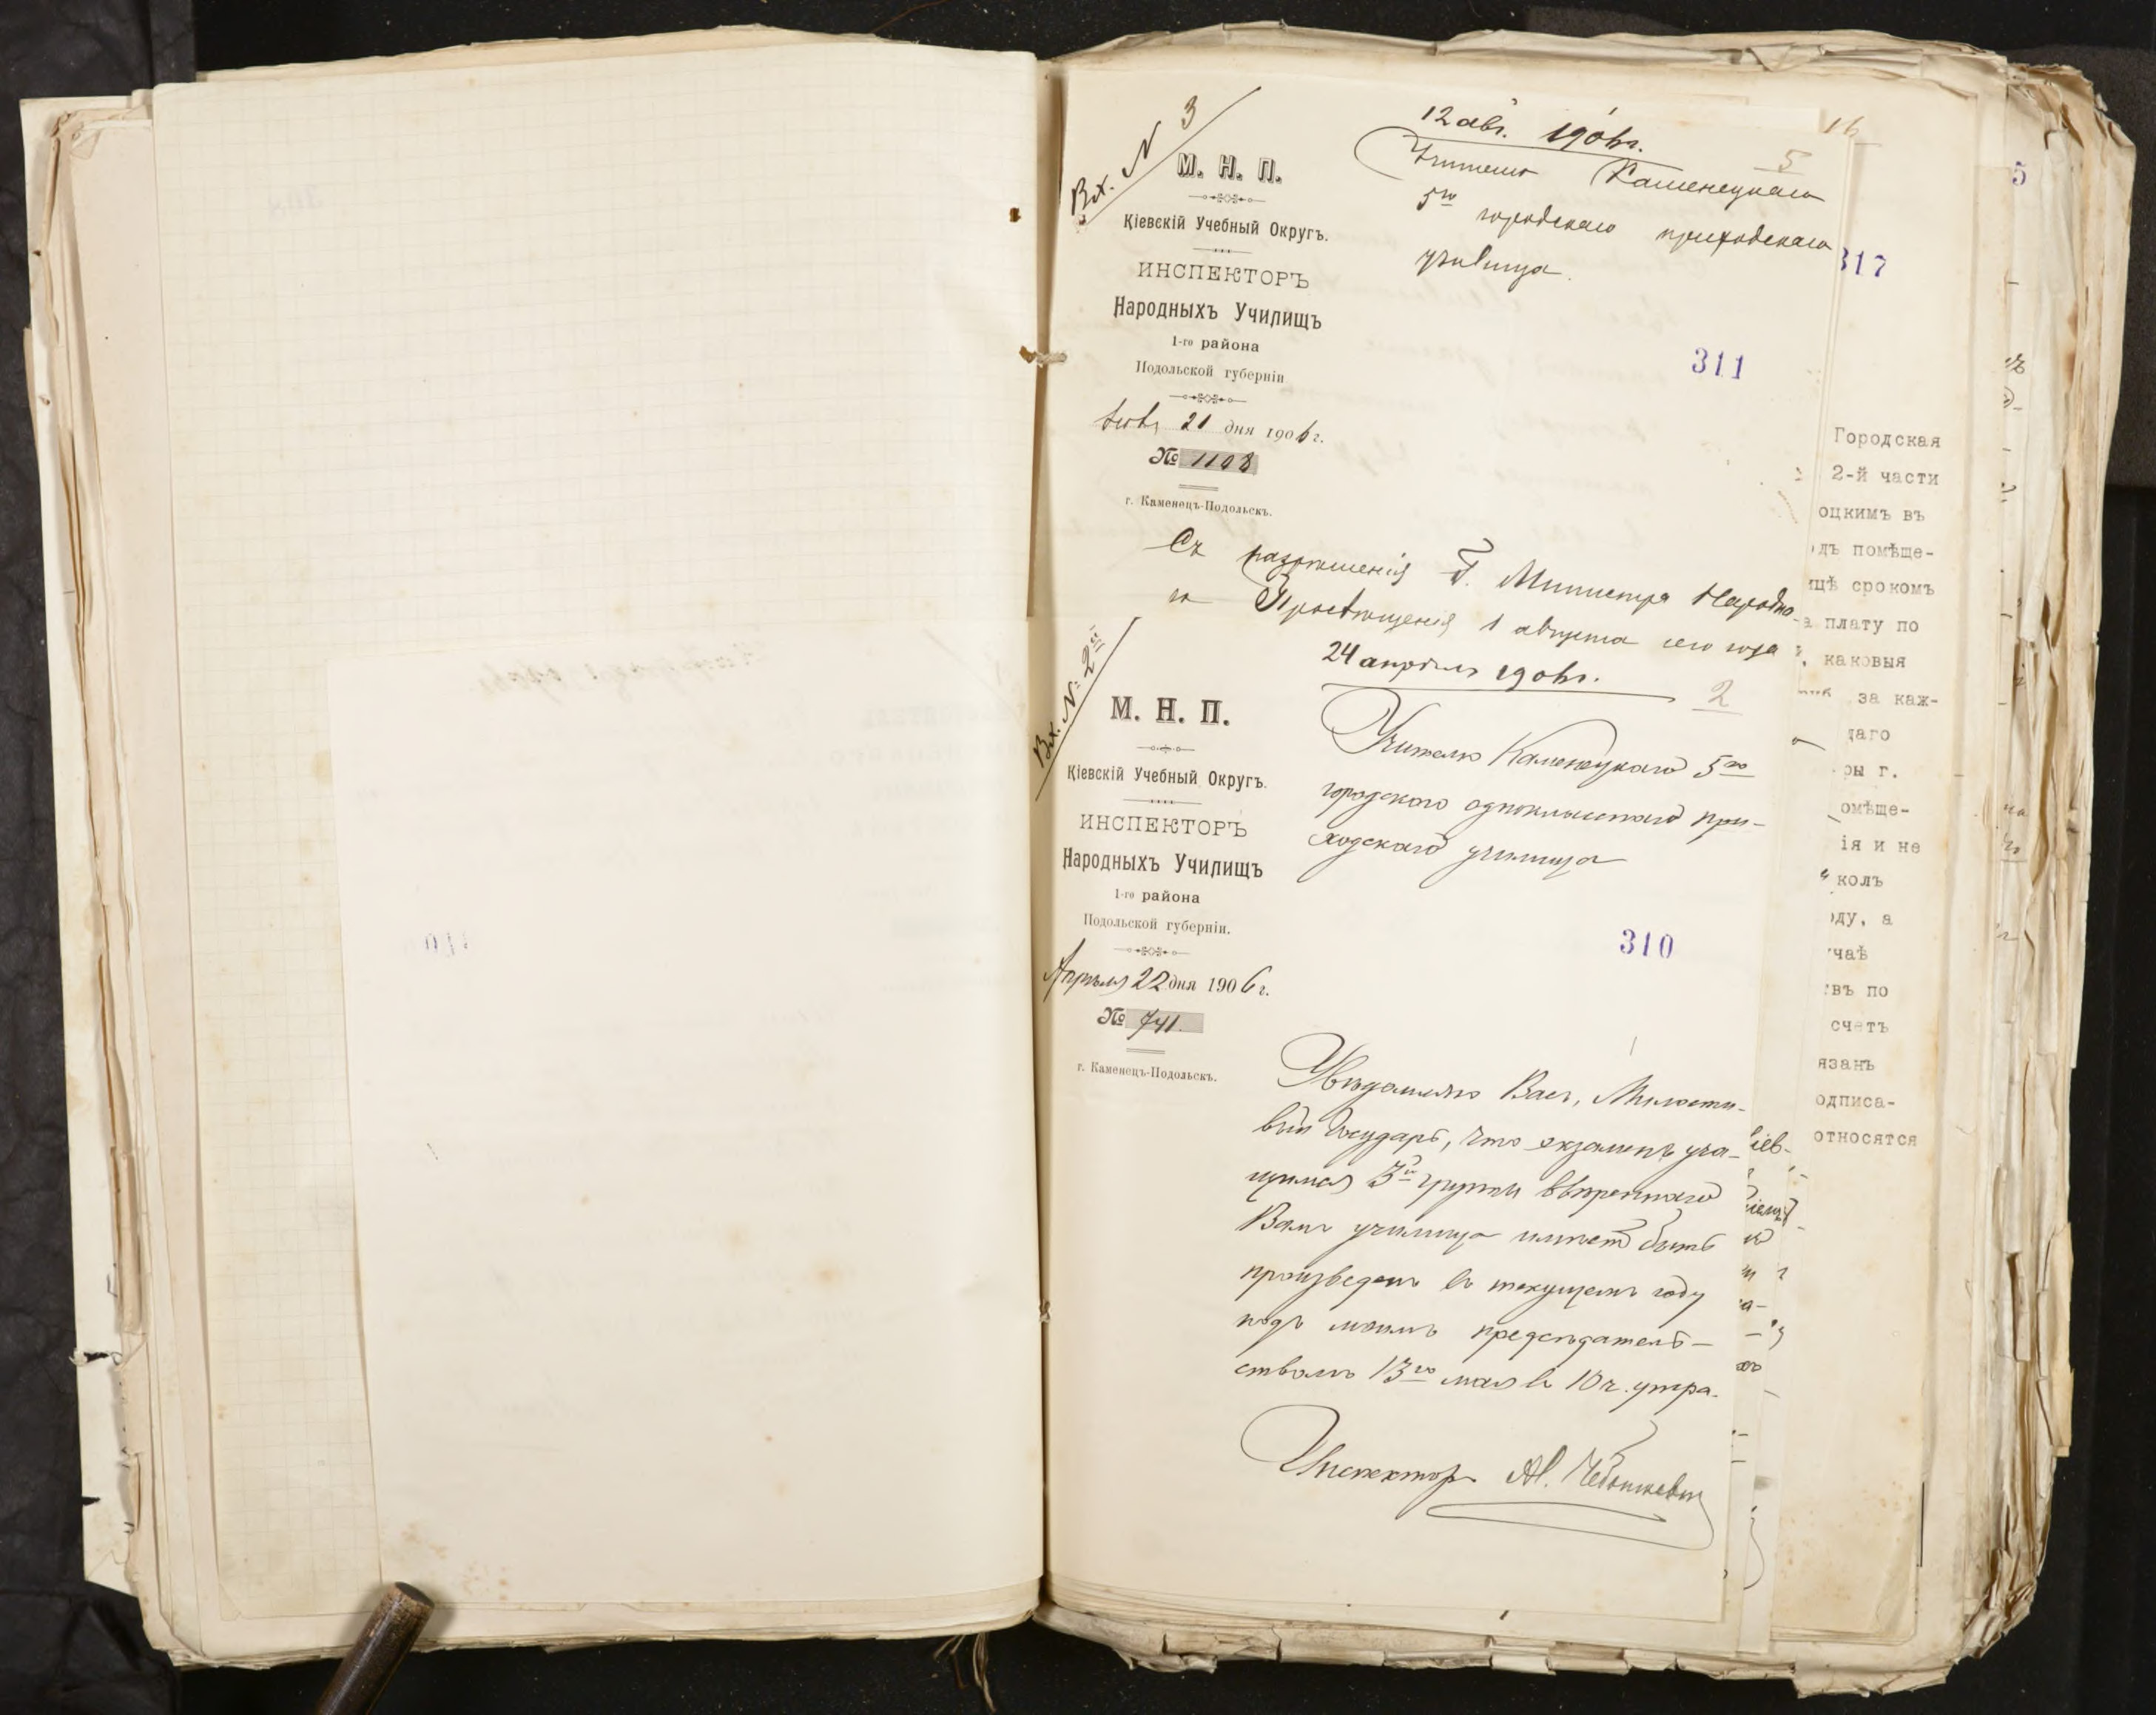 Вх. N 3
12 авг. 1906 г.
16
5
М. Н. П.
Кіевскій Учебный Округъ.
ИНСПЕКТОРЪ
Народныхъ Училищъ
1-го района
Подольской губерніи
21 дня 1906 г.
№ 1108
г. Каменецъ-Подольскъ.
Учителю Каменецкаго
5го городскаго приходскаго
училища.
311
Съ разрѣшенія Г. Министра Народна-
го Просвѣщенія 1 августа сего года
Вх. N: 2й
24 апрѣля 1906 г.
2
М. Н. П.
Кіевскій Учебный Округъ.
ИНСПЕКТОРЪ
Народныхъ Училищъ
1-го района
Подольской губерніи.
Апрѣля 22 дня 1906 г.
№ 741.
г. Каменецъ-Подольскъ.
Учителю Каменецкаго 5го
городского одноклассного при-
ходскаго училища
310
Увѣдомляю Васъ, Милости-
вый Государь, что экзаменъ уча-
щимся 3й группы ввѣреннаго
Вамъ училища имѣетъ быть
произведенъ въ текущемъ году
подъ моимъ предсѣдатель-
ствомъ 13го мая въ 10 ч. утра.
Инспекторъ
317
Городская
2-й части
оцкимъ въ
дъ помѣще-
ицѣ срокомъ
а плату по
каковыя
за каж-
даго
ры г.
омѣще-
ія и не
колъ
ду, а
чаѣ
въ по
счетъ
язанъ
одписа-
относятся
5